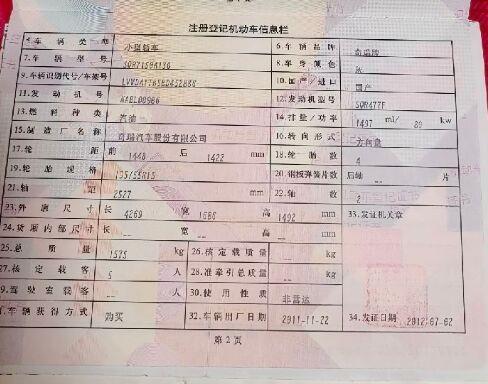 注册登记机动车信息栏
5.车辆类型 小型轿车 6.车辆品牌 奇瑞牌
7.车辆型号 8.车身颜色 灰
9.车辆识别代号/车架号 10.国产/进口 国产
11.发动机号 12.发动机型号 SQR477F
13.燃料种类 汽油 14.排量/功率 1497 ml/ 80 kw
15.制造厂名称 奇瑞汽车股份有限公司 16.转向形式 方向盘
17.轮距 前 1440 后 1422 mm 18.轮胎数 4
19.轮胎规格 20.钢板弹簧片数 后轴 -- 片
21.轴距 2527 mm 22.轴数 2
23.外廓尺寸 长 4269 宽 1686 高 1492 mm 33.发证机关章
24.货厢内部尺寸 长 -- 宽 -- 高 -- mm
25.总质量 1575 kg 26.核定载质量 -- kg
27.核定载客 5 人 28.准牵引总质量 -- kg
9.驾驶室载客 -- 人 30.使用性质 非营运
车辆获得方式 购买 32.车辆出厂日期 2011-11-22 34.发证日期 2012-07-02
第 2 页